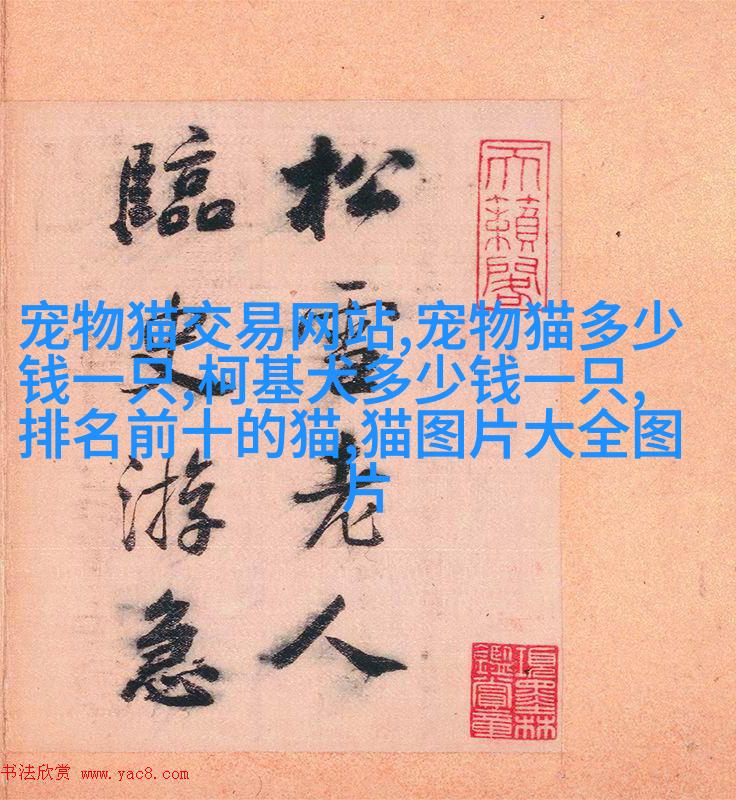 松雪老人
臨史游急
天籟閣
項墨林
鑑賞章
宠物猫交易网站,宠物猫多少
钱一只,柯基犬多少钱一只,
排名前十的猫,猫图片大全图
片
书法欣赏 www.yac8.com